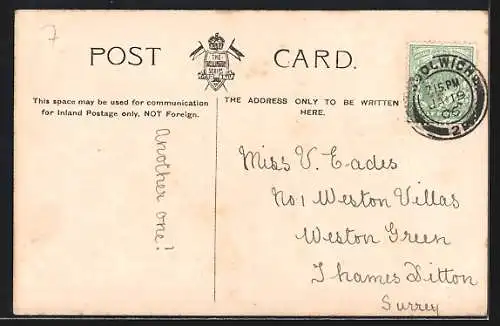 7
POST CARD.
THE
This space may be used for communication
for Inland Postage only, NOT Foreign.
THE ADDRESS ONLY TO BE WRITTEN
HERE.
WOOLWICH
7.15 PM
Another one!
Miss V. Eades
No 1 Weston Villas
Weston Green
Thames Ditton
Surrey